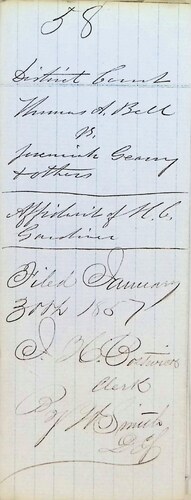 58
District Court
Thomas A. Bell
vs.
Jeremiah Geary
& others
Affidavit of H. C.
Gardiner
Filed January
30th 1857
Clerk
By W Smith